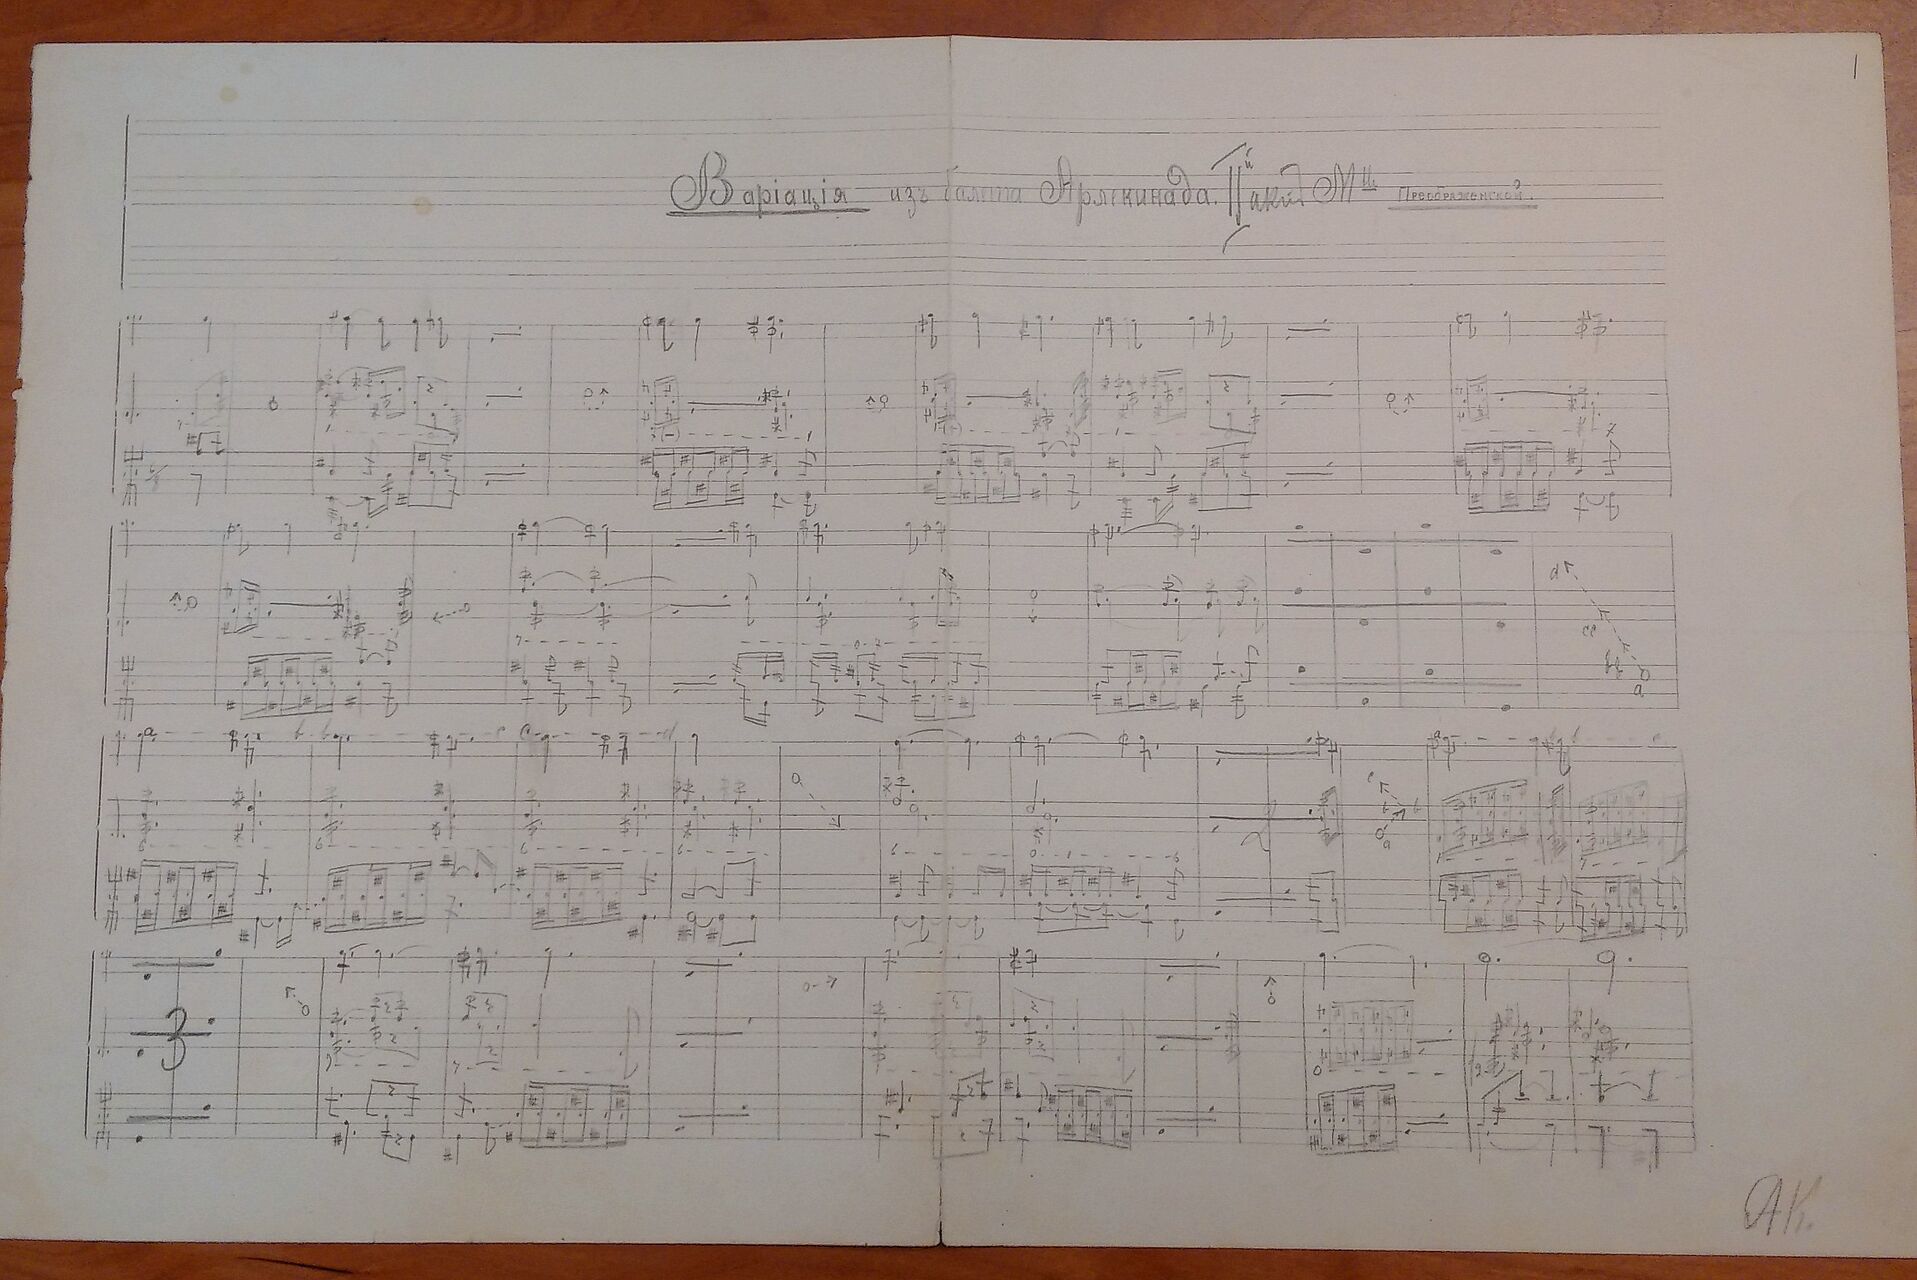 1
Варіація изъ балета Арлекинада. IIй актъ Мц. Преображенской.
3
АК.